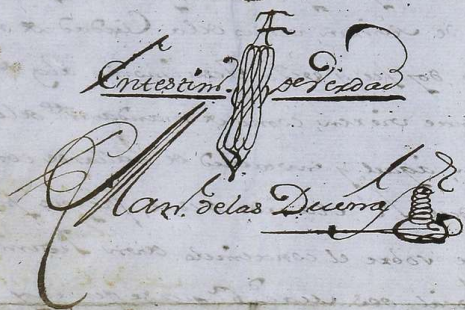 En testim.º de Verdad
Man.l de las Dueñas